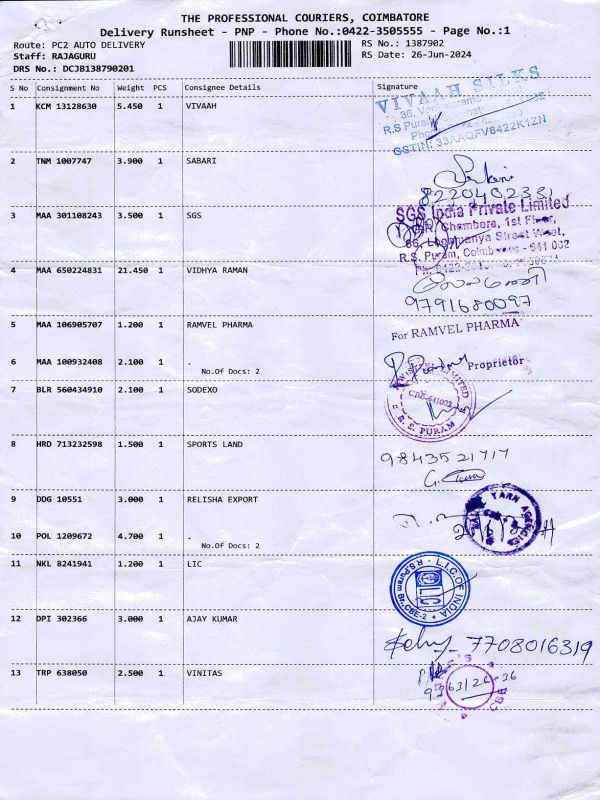 THE PROFESSIONAL COURIERS, COIMBATORE
Delivery Runsheet - PNP - Phone No.:0422-3505555 - Page No.:1
Route: PC2 AUTO DELIVERY
RS No.: 1387902
Staff: RAJAGURU
RS Date: 26-Jun-2024
DRS No.: DCJB138790201
S No Consignment No Weight PCS Consignee Details Signature
1 KCM 13128630 5.450 1 VIVAAH
VIVAAH SILKS
36,
R.S Puram
GSTIN: 33AAQFV8422K1ZN
2 TNM 1007747 3.900 1 SABARI
3 MAA 301108243 3.500 1 SGS
SGS India Private Limited
Chambers, 1st Floor,
R.S. Puram, Coimbatore - 641 002
4 MAA 650224831 21.450 1 VIDHYA RAMAN
9791680097
5 MAA 106905707 1.200 1 RAMVEL PHARMA
For RAMVEL PHARMA
6 MAA 100932408 2.100 1 .
No.Of Docs: 2
Proprietor
7 BLR 560434910 2.100 1 SODEXO
LIMITED
CBE-641002
R. S. PURAM
8 HRD 713232598 1.500 1 SPORTS LAND
9843521717
9 DDG 10551 3.000 1 RELISHA EXPORT
YARN AGENCIES
10 POL 1209672 4.700 1 .
No.Of Docs: 2
11 NKL 8241941 1.200 1 LIC
L.I.C.OF INDIA
R.S.Puram Br., CBE-2
12 DPI 302366 3.000 1 AJAY KUMAR
7708016319
13 TRP 638050 2.500 1 VINITAS
CBE